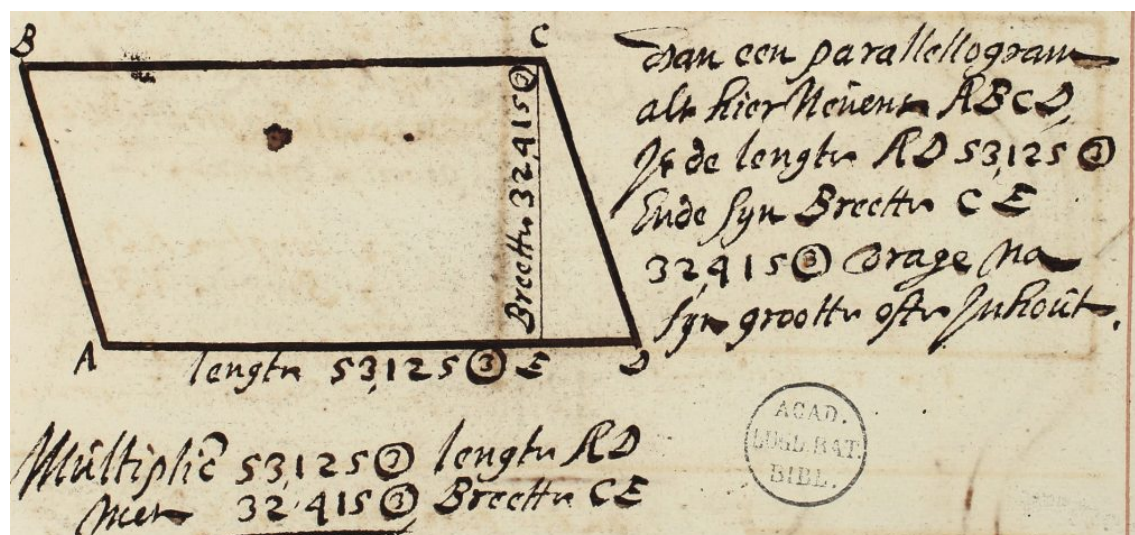 B
C
Breette 32,415③
A
lengte 53,125③ E
D
Van een parallellogram
als hier Nevens ABCD,
Js de lengte AD 53,125③
Ende syn Breette CE
32,415③ Vrage Na
syn grootte ofte Jnhout.
Multiplic 53,125③ lengte AD
Met 32,415③ Breette CE
ACAD.
LUGD. BAT.
BIBL.